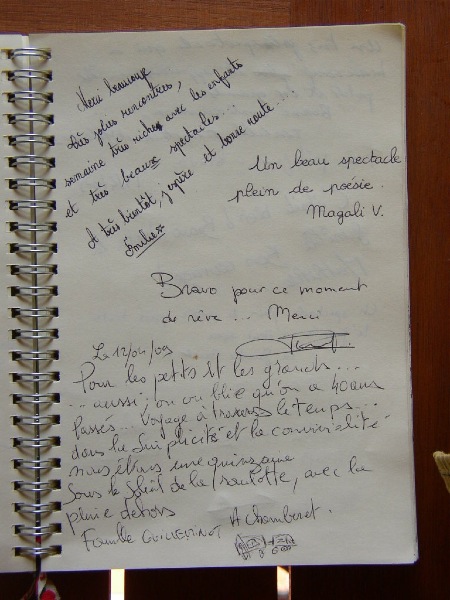 Merci beaucoup
très jolies rencontres,
semaine très riche avec les enfants
et très beaux spectacles...
A très bientôt, j'espère et bonne route...
Emilie
Un beau spectacle
plein de poésie.
Magali V.
Bravo pour ce moment
de rêve... Merci
Le 12/04/09
Pour les petits et les grands...
...aussi, on oublie qu'on a 40 ans
Passés... Voyage à travers le temps...
dans la simplicité et la convivialité
nous étions une quinzaine
Sous le Soleil de la roulotte, avec la
pluie dehors
Famille GUILLEMINOT A Chamberet.